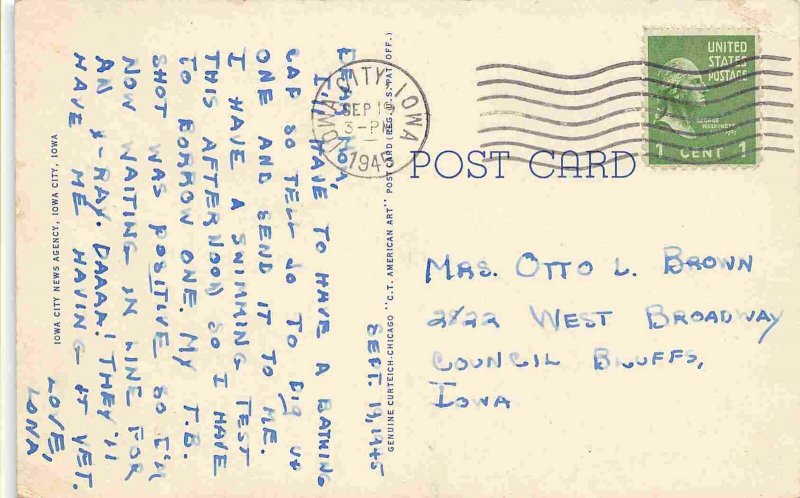 SEPT. 19, 1945
DEAR MOM,
I'LL HAVE TO HAVE A BATHING
CAP SO TELL JO TO DIG UP
ONE AND SEND IT TO ME.
I HAVE A SWIMMING TEST
THIS AFTERNOON SO I HAVE
TO BORROW ONE. MY T.B.
SHOT WAS POSITIVE SO I'M
NOW WAITING IN LINE FOR
AN X-RAY. DAAAA! THEY'LL
HAVE ME HAVING IT YET.
LOVE,
LONA,
IOWA CITY NEWS AGENCY, IOWA CITY, IOWA
GENUINE CURTEICH-CHICAGO "C.T. AMERICAN ART" POST CARD (REG. U.S. PAT. OFF.)
IOWA CITY, IOWA
SEP
3-PM
1945
UNITED
STATES
POSTAGE
GEORGE
WASHINGTON
1 CENT 1
POST CARD
MRS. OTTO L. BROWN
2122 WEST BROADWAY
COUNCIL BLUFFS,
IOWA